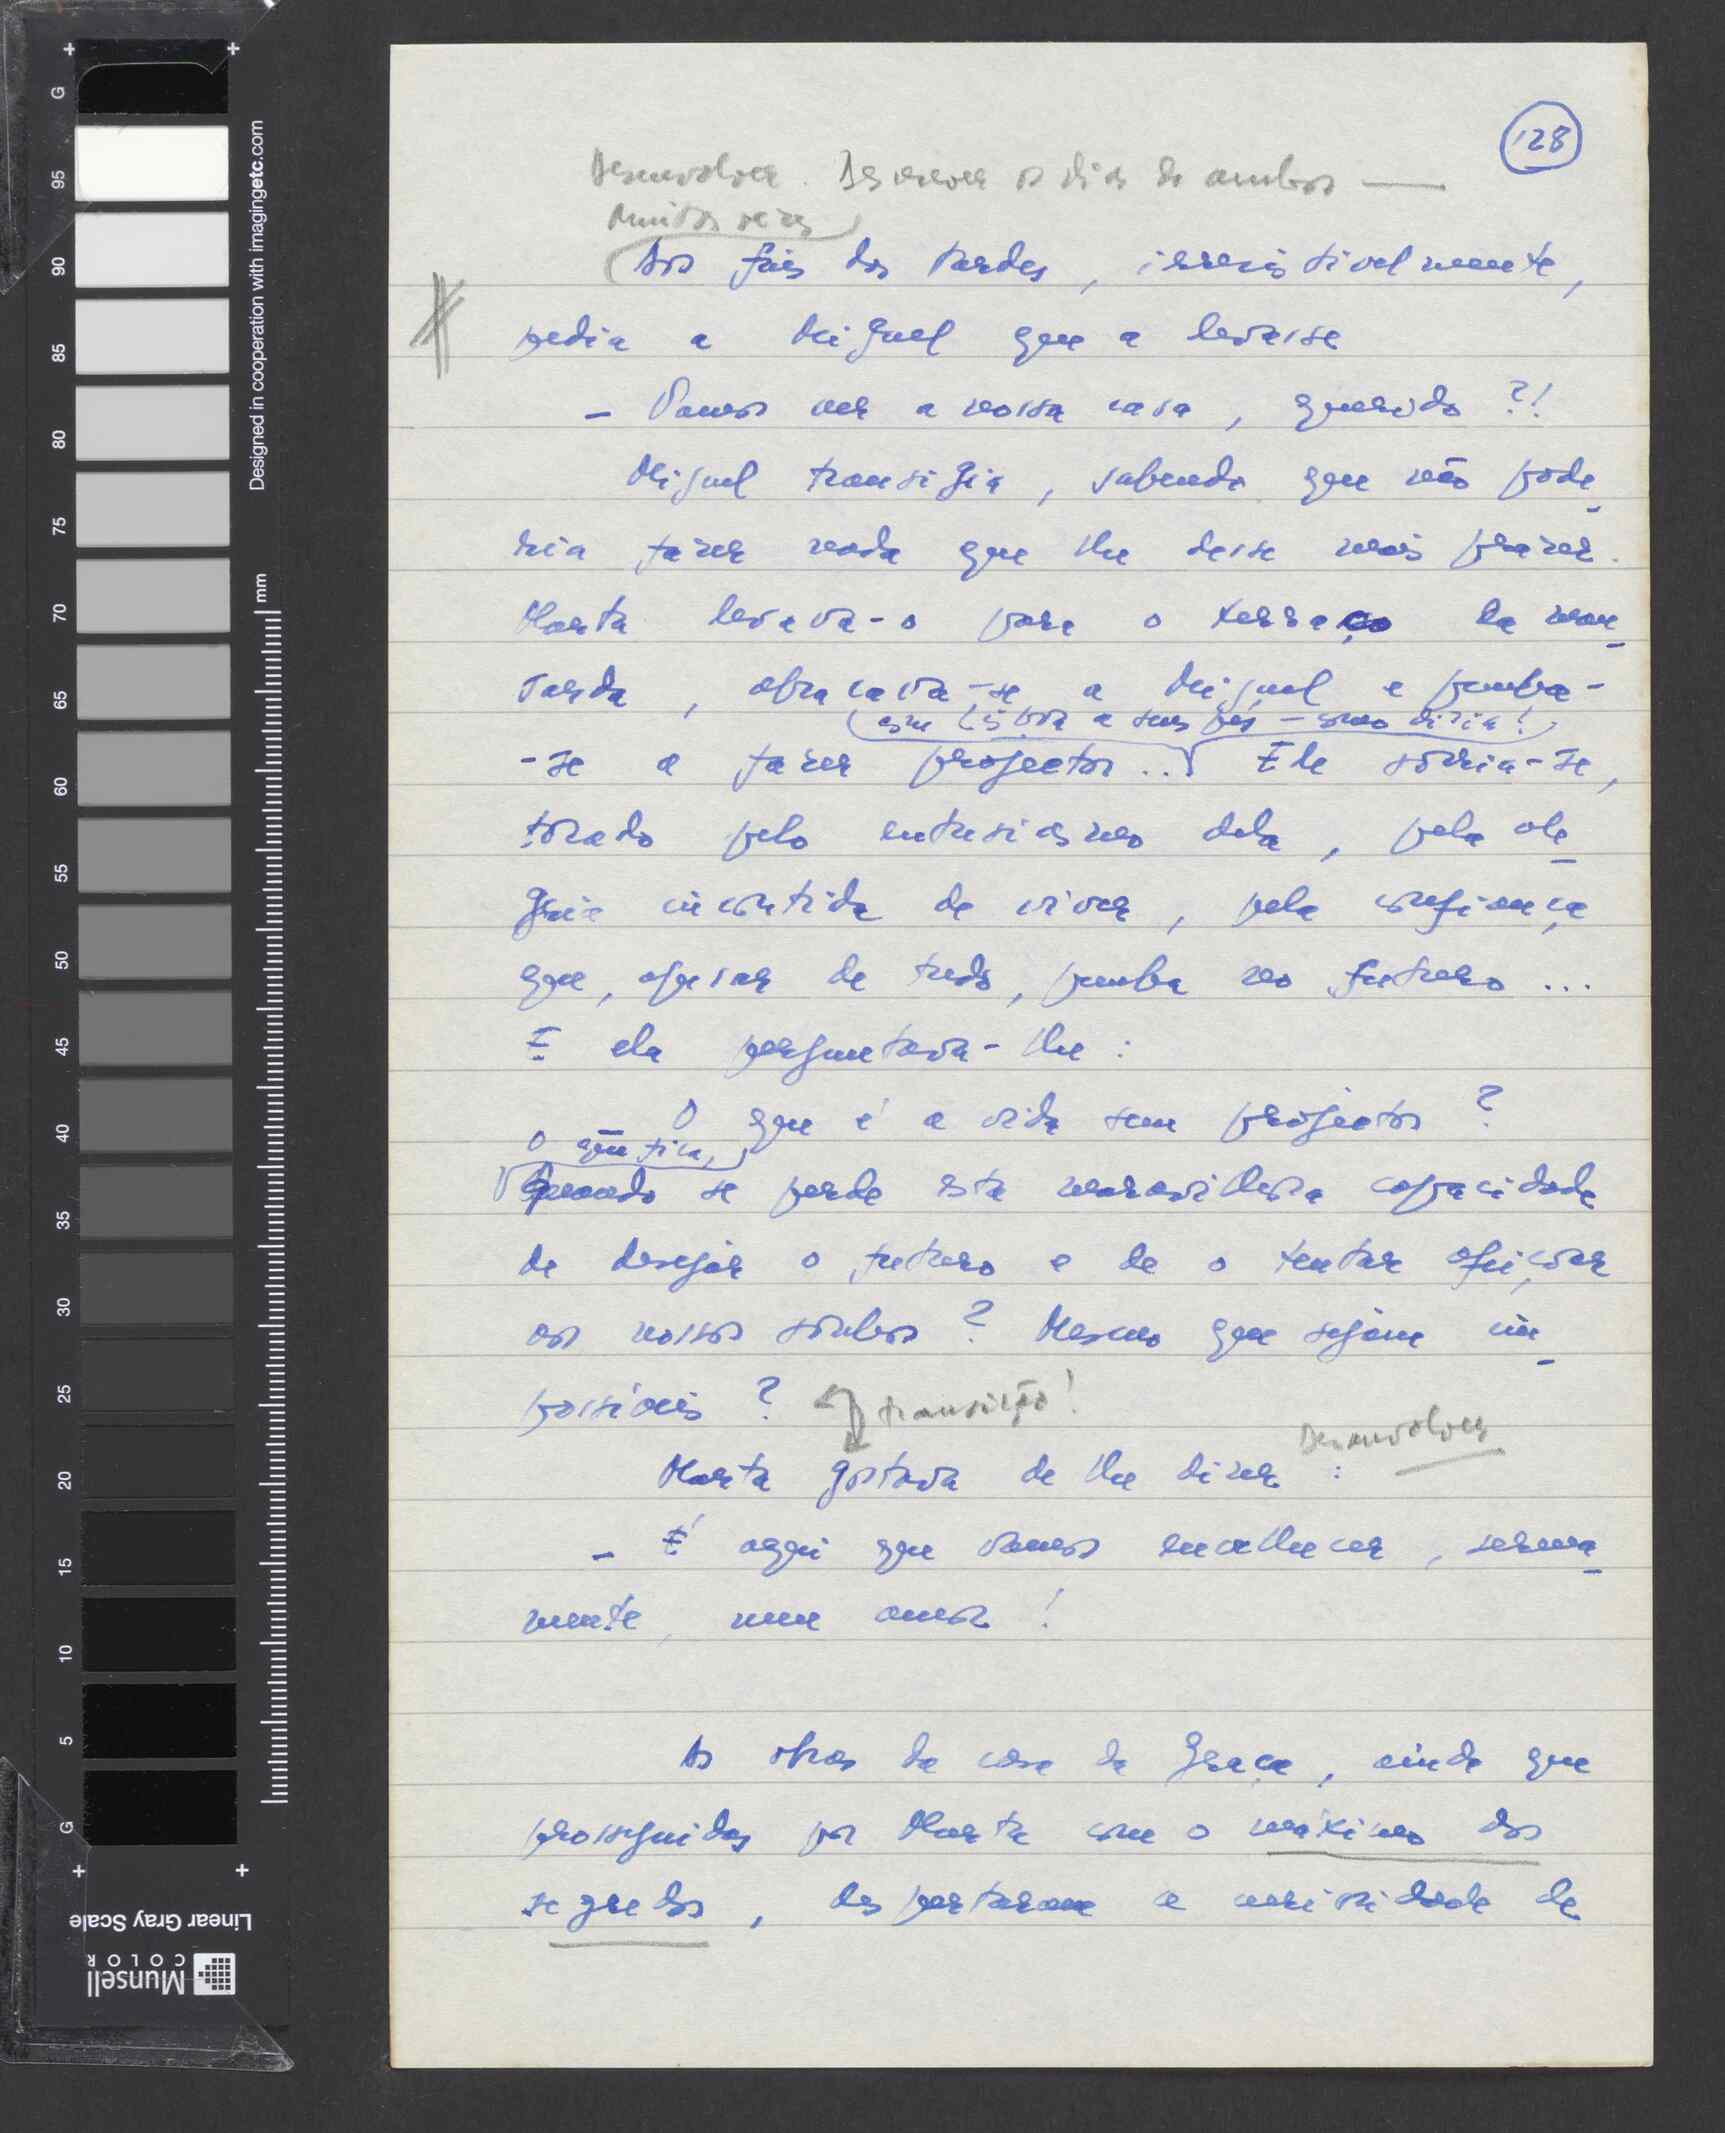 128
Desenvolver. Descrever os dias de ambos —
Muitas vezes
Aos fins das tardes, irresistivelmente,
pedia a Miguel que a levasse
— Vamos ver a nossa casa, querido?!
Miguel transigia, sabendo que não pode_
ria fazer nada que lhe desse mais prazer.
Marta levava-o para o terraço da man_
sarda, abraçava-se a Miguel e punha-
com Lisboa a seus pés - como dizia!
-se a fazer projectos... Ele sorria-se,
tocado pelo entusiasmo dela, pela ale_
gria incontida de viver, pela confiança
que, apesar de tudo, punha no futuro...
E ela perguntava-lhe:
O que é a vida sem projectos?
O que fica,
Quando se perde esta maravilhosa capacidade
de desejar o futuro e de o tentar afeiçoar
aos nossos sonhos? Mesmo que sejam im_
possíveis? transição!
Desenvolver
Marta gostava de lhe dizer:
— É aqui que vamos envelhecer, serena_
mente, meu amor!
As obras da casa da Graça, ainda que
prosseguidas por Marta com o máximo dos
segredos, despertaram a curiosidade de
Designed in cooperation with imagingetc.com
mm
G
95
90
85
80
75
70
65
60
55
50
45
40
35
30
25
20
15
10
5
G
Linear Gray Scale
Munsell
COLOR